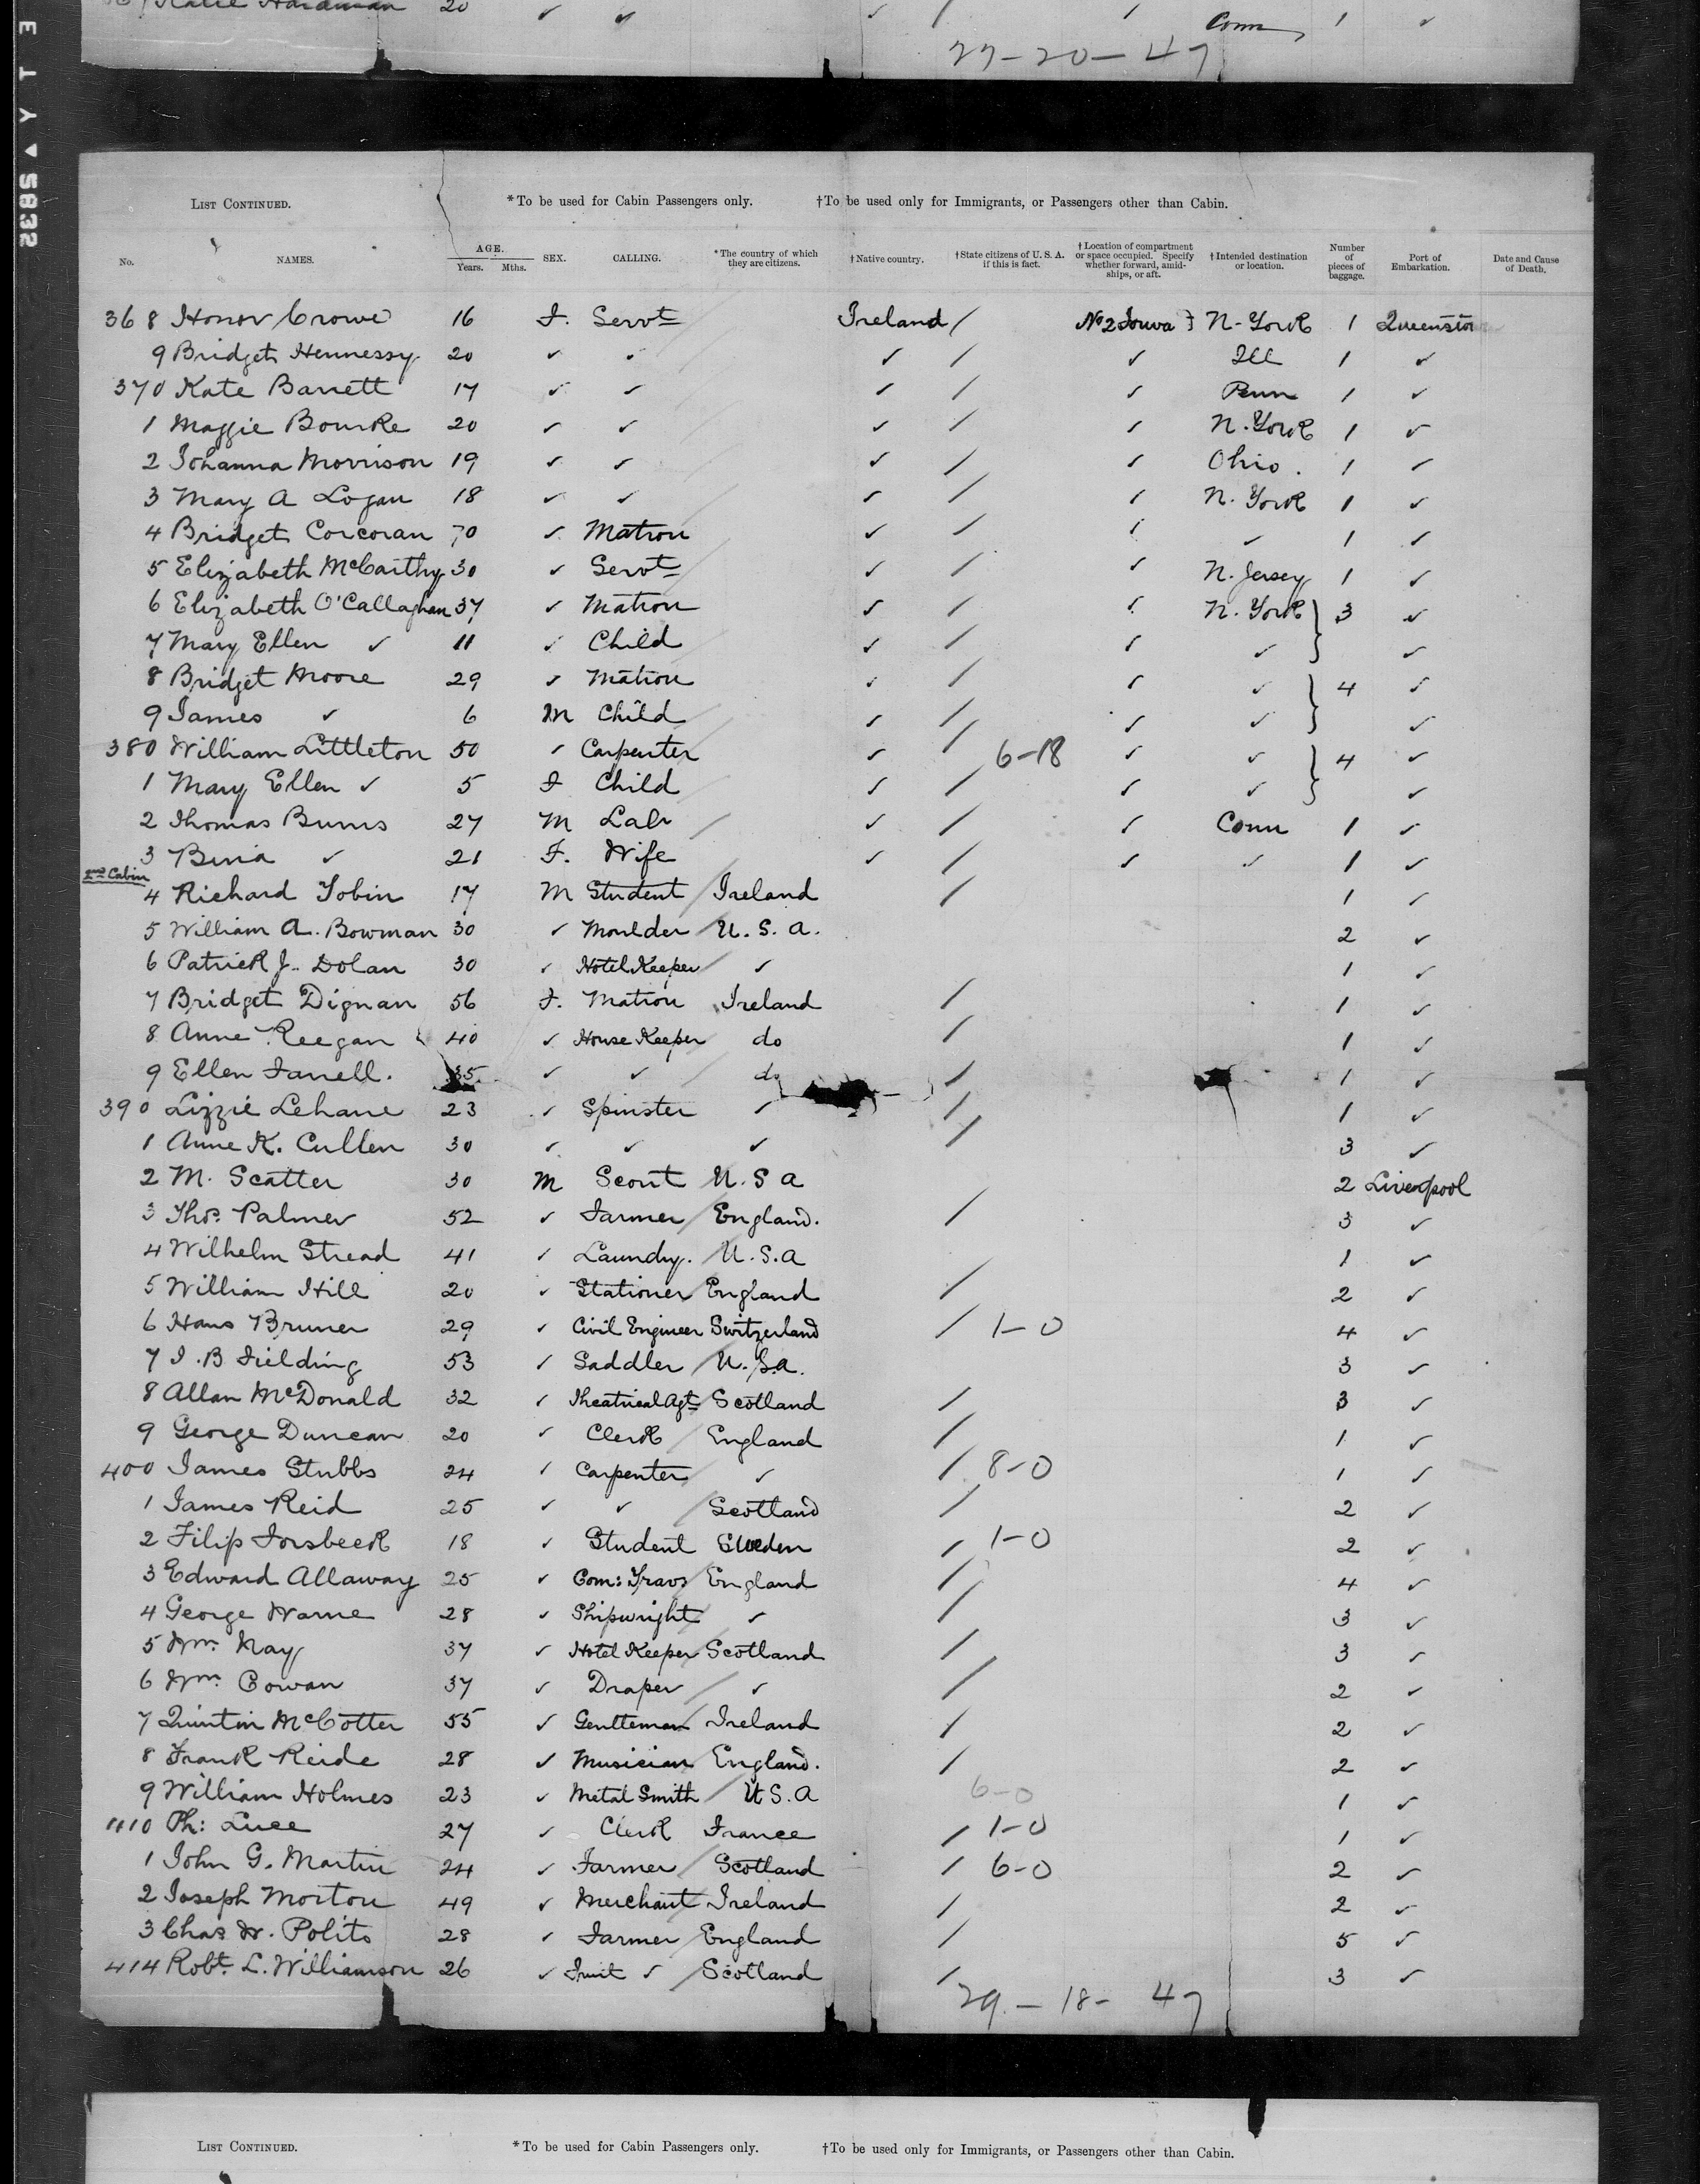 Katie Hardiman 20 ✓ ✓ ✓ / / Conn 1 ✓
27-20-47
E T Y ▲ S832
LIST CONTINUED. *To be used for Cabin Passengers only. †To be used only for Immigrants, or Passengers other than Cabin.
No. NAMES. AGE. Years. Mths. SEX. CALLING. *The country of which they are citizens. †Native country. †State citizens of U. S. A. if this is fact. †Location of compartment or space occupied. Specify whether forward, amidships, or aft. †Intended destination or location. Number of pieces of baggage. Port of Embarkation. Date and Cause of Death.
368 Honor Crowe 16 F. Servt Ireland / No 2 N-York 1 Queenstown
9 Bridget Hennessy 20 ✓ ✓ ✓ / ✓ Ill 1 ✓
370 Kate Barrett 17 ✓ ✓ ✓ / ✓ Penn 1 ✓
1 Maggie Bourke 20 ✓ ✓ ✓ / ✓ N. York 1 ✓
2 Johanna Morrison 19 ✓ ✓ ✓ / ✓ Ohio. 1 ✓
3 Mary A Logan 18 ✓ ✓ ✓ / ✓ N. York 1 ✓
4 Bridget Corcoran 70 ✓ Matron ✓ / ✓ ✓ 1 ✓
5 Elizabeth McCarthy 30 ✓ Servt ✓ / ✓ N. Jersey 1 ✓
6 Elizabeth O'Callaghan 37 ✓ Matron ✓ / ✓ N. York } 3 ✓
7 Mary Ellen ✓ 11 ✓ Child ✓ / ✓ ✓ ✓
8 Bridget Moore 29 ✓ Matron ✓ / ✓ ✓ } 4 ✓
9 James ✓ 6 M Child ✓ / ✓ ✓ ✓
380 William Littleton 50 ✓ Carpenter ✓ / 6-18 ✓ ✓ } 4 ✓
1 Mary Ellen ✓ 5 F Child ✓ / ✓ ✓ ✓
2 Thomas Burns 27 M Labr ✓ / ✓ Conn 1 ✓
3 ✓ 21 F. Wife ✓ / ✓ ✓ 1 ✓
2nd Cabin
4 Richard Tobin 17 M Student Ireland / 1 ✓
5 William A. Bowman 30 ✓ Moulder U. S. A. 2 ✓
6 Patrick J. Dolan 30 ✓ Hotel Keeper ✓ 1 ✓
7 Bridget Dignan 56 F. Matron Ireland / 1 ✓
8 Anne Keegan 40 ✓ House Keeper do / 1 ✓
9 Ellen Farrell. 35 ✓ ✓ do / 1 ✓
390 Lizzie Lehane 23 ✓ Spinster ✓ / 1 ✓
1 Anne K. Cullen 30 ✓ ✓ ✓ / 3 ✓
2 M. Scatter 30 M Scout U. S A 2 Liverpool
3 Thos. Palmer 52 ✓ Farmer England. / 3 ✓
4 Wilhelm Stread 41 ✓ Laundry. U. S. A 1 ✓
5 William Hill 20 ✓ Stationer England / 2 ✓
6 Hans Bruner 29 ✓ Civil Engineer Switzerland / 1-0 4 ✓
7 J. B. Fielding 53 ✓ Saddler U. S. A. 3 ✓
8 Allan McDonald 32 ✓ Theatrical Agt Scotland / 3 ✓
9 George Duncan 20 ✓ Clerk England / 1 ✓
400 James Stubbs 24 ✓ Carpenter ✓ / 8-0 1 ✓
1 James Reid 25 ✓ ✓ Scotland / 2 ✓
2 Filip Forsbeck 18 ✓ Student Sweden / 1-0 2 ✓
3 Edward Allaway 25 ✓ Com: Travr England / 4 ✓
4 George Warne 28 ✓ Shipwright ✓ / 3 ✓
5 Wm. Kay 37 ✓ Hotel Keeper Scotland / 3 ✓
6 Wm. Cowan 37 ✓ Draper ✓ / 2 ✓
7 Quintin McCotter 55 ✓ Gentleman Ireland / 2 ✓
8 Frank Reide 28 ✓ Musician England. / 2 ✓
9 William Holmes 23 ✓ Metal Smith U S. A 6-0 1 ✓
410 Ph: Luce 27 ✓ Clerk France / 1-0 1 ✓
1 John G. Martin 24 ✓ Farmer Scotland / 6-0 2 ✓
2 Joseph Morton 49 ✓ Merchant Ireland / 2 ✓
3 Chas W. Polits 28 ✓ Farmer England / 5 ✓
414 Robt. L. Williamson 26 ✓ Fruit ✓ Scotland / 3 ✓
29.-18-47
LIST CONTINUED. *To be used for Cabin Passengers only. †To be used only for Immigrants, or Passengers other than Cabin.